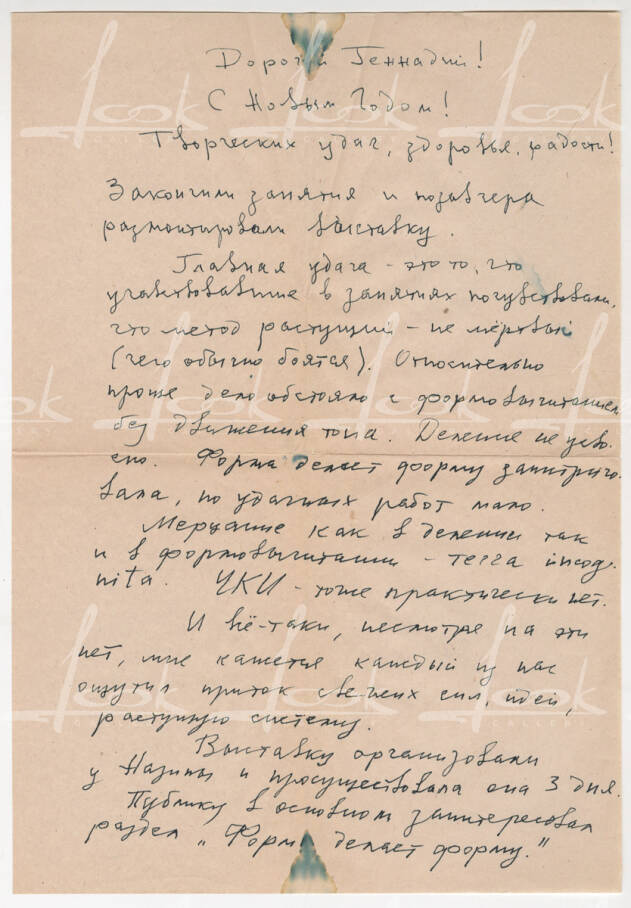 Дорогой Геннадий!
С Новым Годом!
Творческих удач, здоровья, радости!
Закончили занятия и позавчера
размонтировали выставку.
Главная удача - это то, что
участвовавшие в занятиях почувствовали,
что метод растущий - не мёртвый
(чего обычно боятся). Относительно
проще дело обстояло с формовычитанием
без движения тона. Деление не усво-
ено. Форма делает форму заинтриго-
вала, но удачных работ мало.
Мерцание как в делении так
и в формовычитании - terra incog-
nita. ЧКИ - тоже практически нет.
И всё-таки, несмотря на эти
нет, мне кажется каждый из нас
ощутил приток свежих сил, идей,
растущую систему.
Выставку организовали
у Назины и просуществовала она 3 дня.
Публику в основном заинтересовал
раздел „Форма делает форму."
look
GALLERY